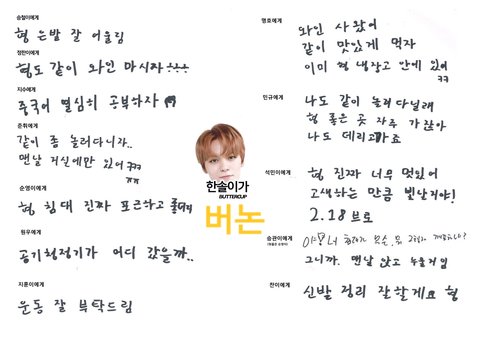 승철이에게
형 은발 잘 어울림
정한이에게
형도 같이 와인 마시자
지수에게
중국어 열심히 공부하자
준휘에게
같이 좀 놀러다니라..
맨날 거실에만 있어ㅋㅋㅋ
ㅠㅠ
순영이에게
형 침대 진짜 포근하고 좋더라
원우에게
공기청정기가 어디 갔을까..
지훈이에게
운동 잘 부탁드림
한솔이가
BUTTERCUP
버논
명호에게
와인 사 놨어
같이 맛있게 먹자
이미 형 냉장고 안에 있어
ㅋㅋ
민규에게
나도 같이 놀러 다닐래
형 좋은 곳 자주 가잖아
나도 데리고 가죠
석민이에게
형 진짜 너무 멋있어
고생하는 만큼 빛날거야!
2.18 브로
승관이에게
야 너
그니까. 맨날 앉고 누울거임
찬이에게
신발 정리 잘할게요 형